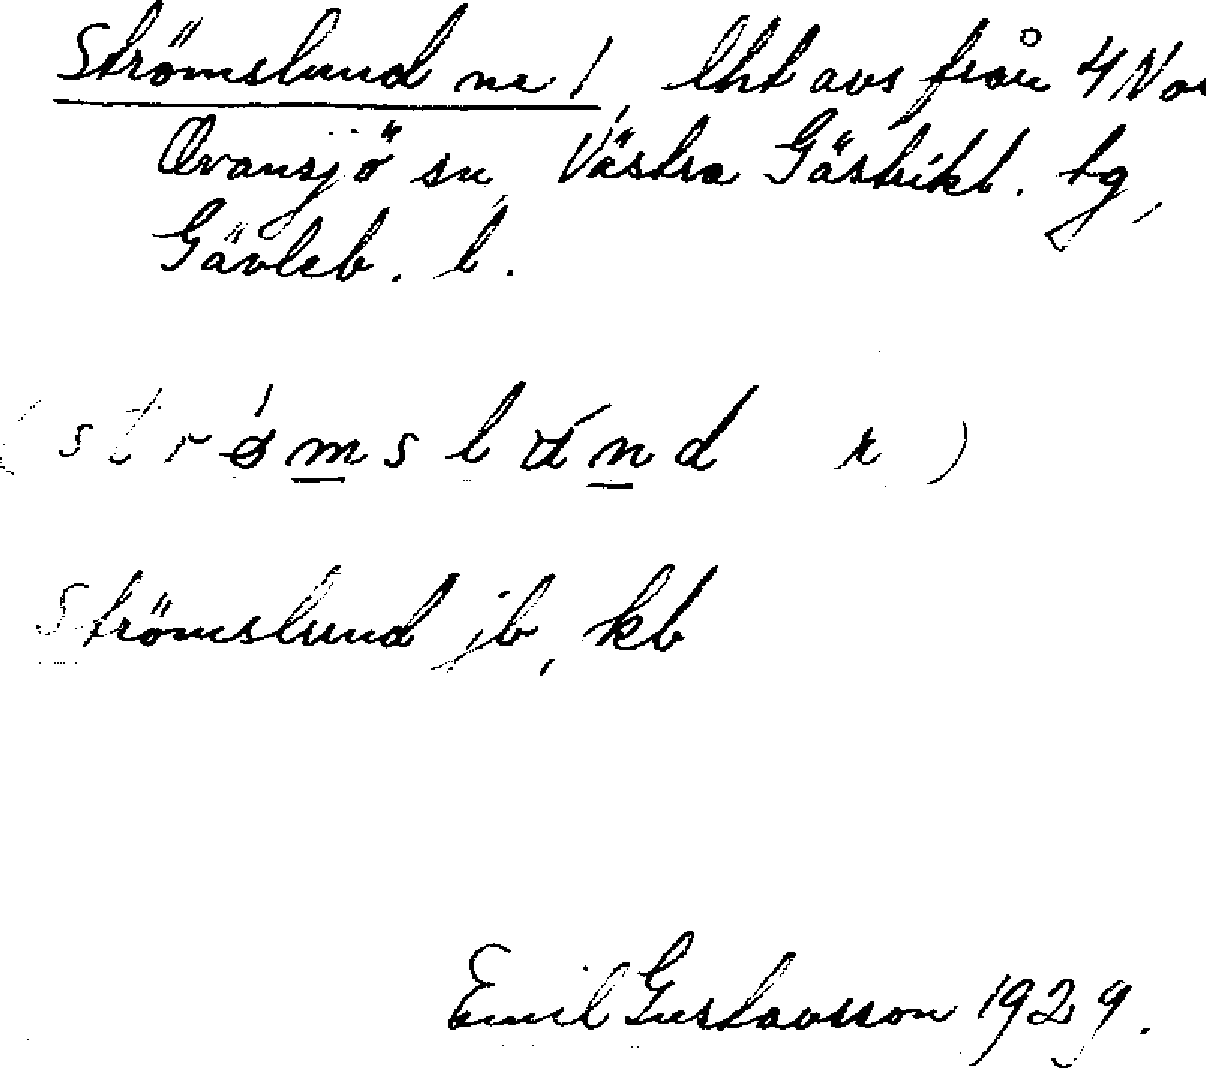 Strömslund ne 1, lht avs från 4 Nor
Ovansjö sn, Västra Gästrikl. tg,
Gävleb. l.
(strømslund r)
Strömslund jb, kb
Emil Gustavsson 1929.